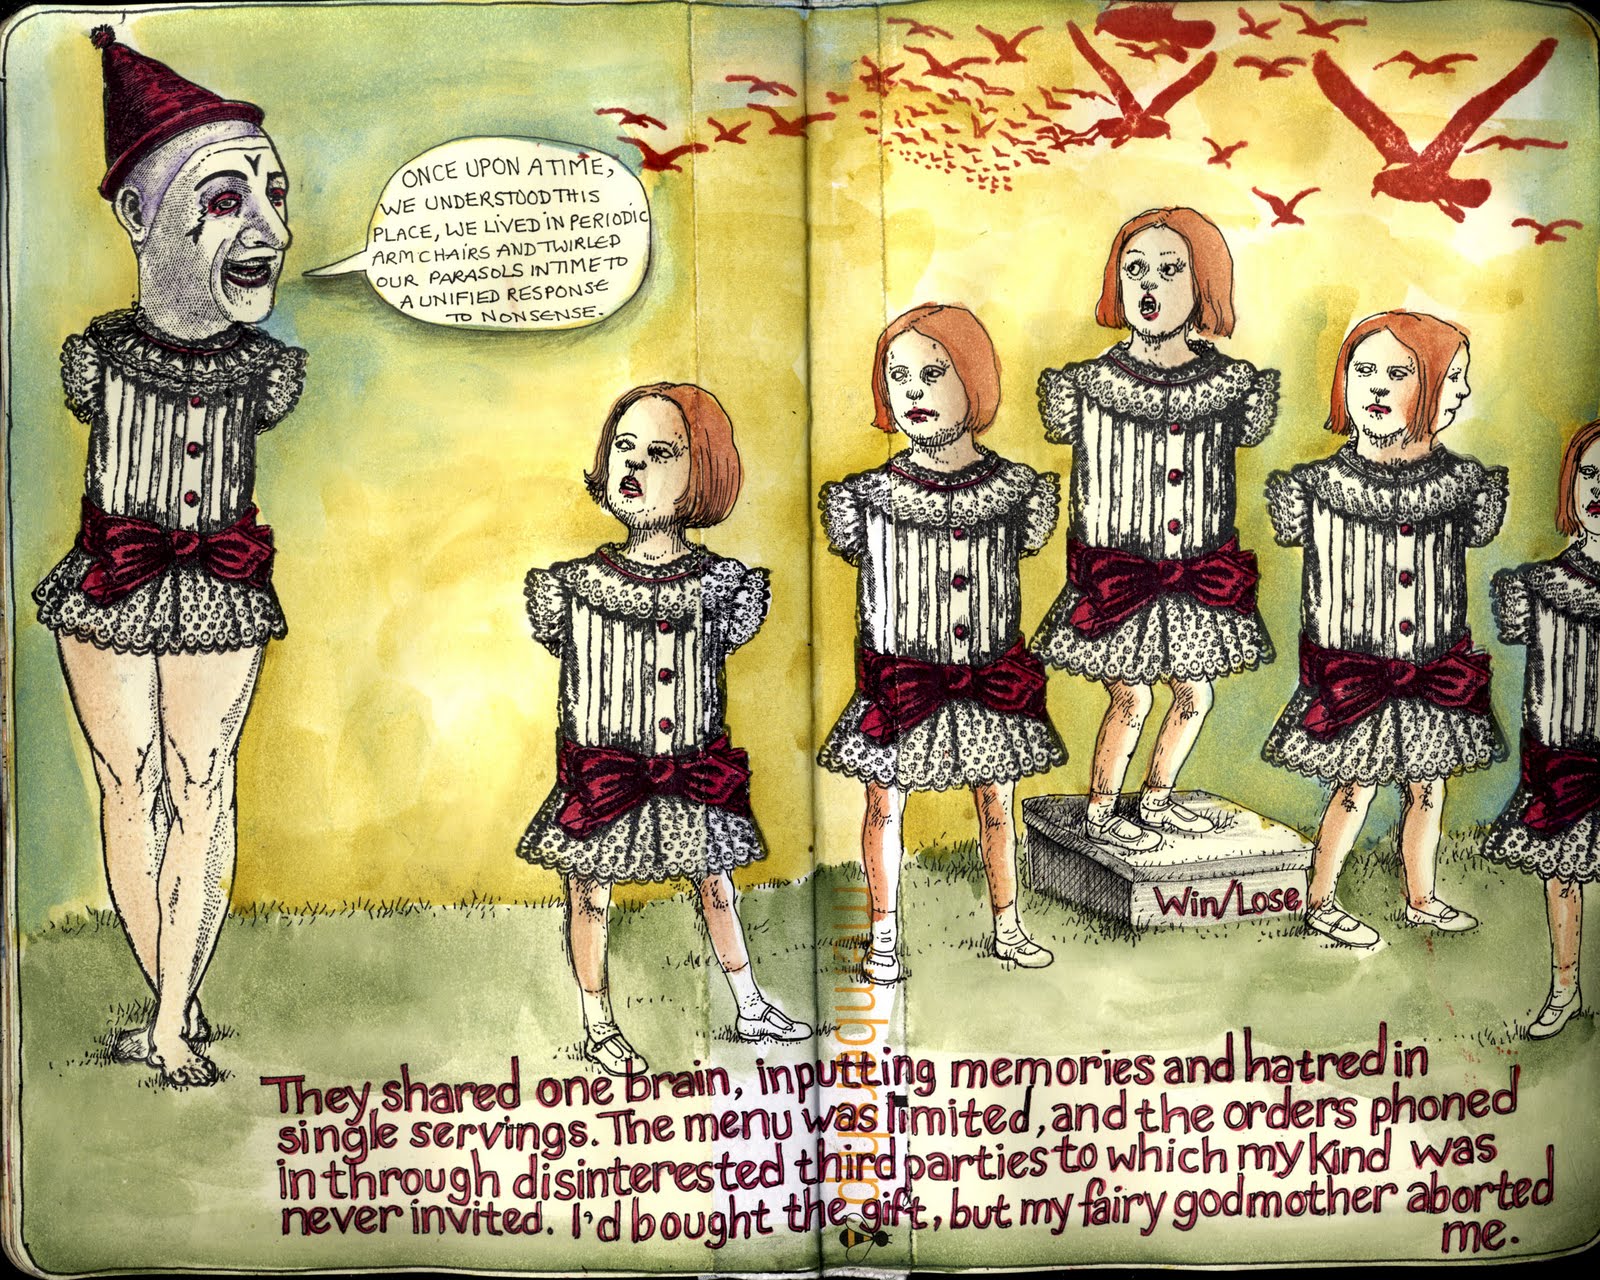 ONCE UPON A TIME,
WE UNDERSTOOD THIS
PLACE, WE LIVED IN PERIODIC
ARMCHAIRS AND TWIRLED
OUR PARASOLS IN TIME TO
A UNIFIED RESPONSE
TO NONSENSE.
Win/Lose
membership
They shared one brain, inputting memories and hatred in
single servings. The menu was limited, and the orders phoned
in through disinterested third parties to which my kind was
never invited. I'd bought the gift, but my fairy godmother aborted
me.